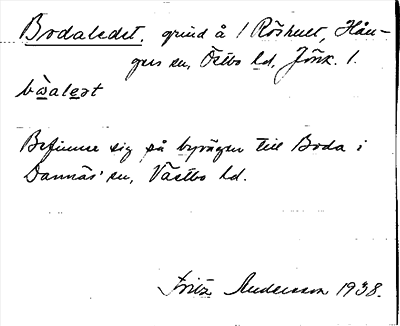 Bodaledet, grind å 1 Röshult, Hån-
gers sn, Östbo hd, Jönk. l.
bòalet
Befinner sig på byvägen till Boda i
Dannäs' sn, Västbo hd.
Fritz Andersson 1938.